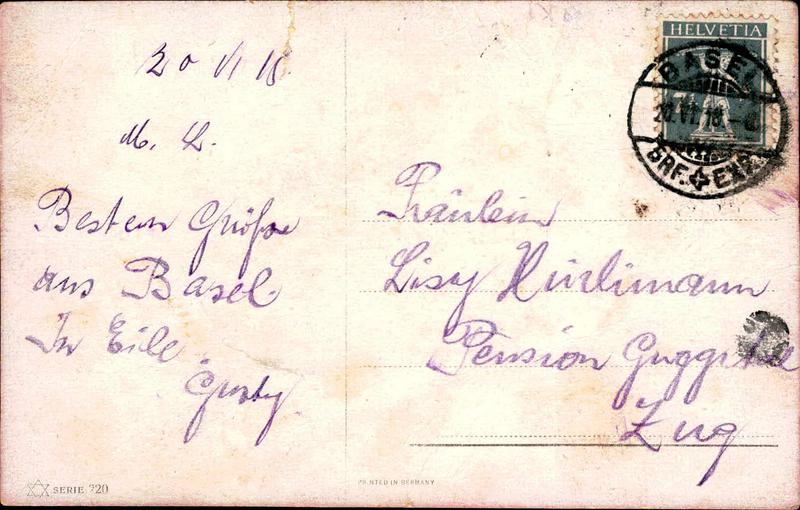 20 VI 18
M. L.
Besten Grüße
aus Basel.
In Eile.
Gusty.
HELVETIA
BASEL
20.VI.18.
BRF. EXP.
Fräulein
Lisy Hürlimann
Pension
Zug
SERIE 720
PRINTED IN GERMANY